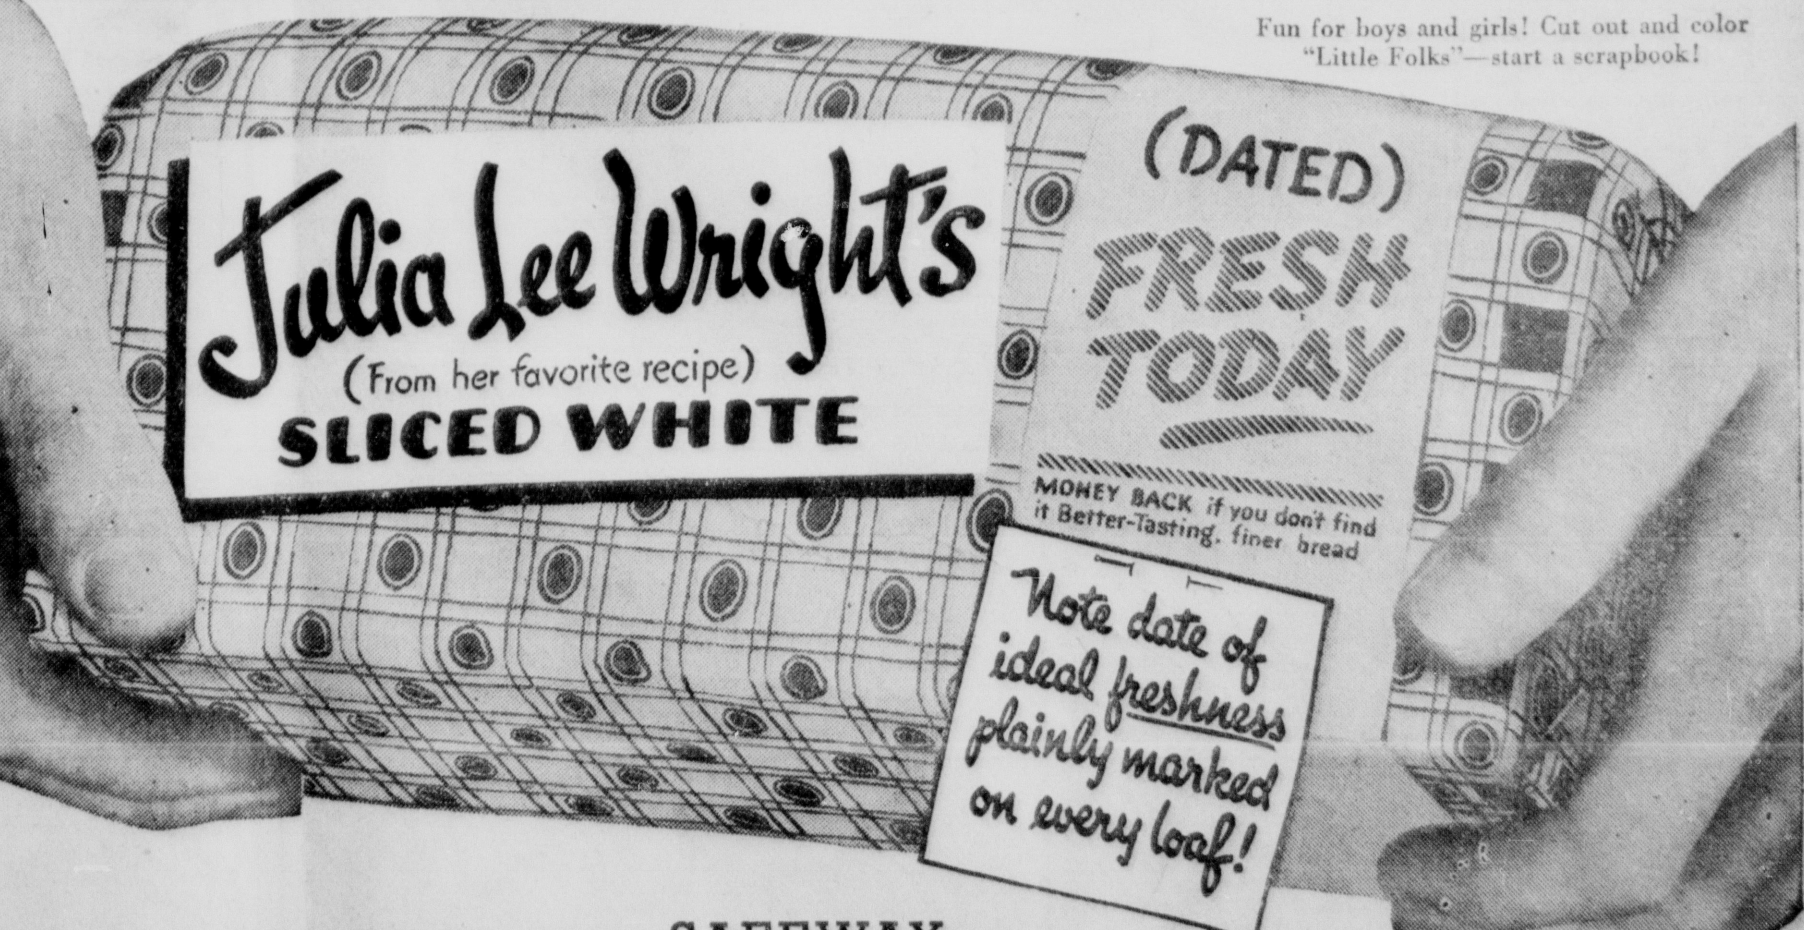 Fun for boys and girls! Cut out and color
"Little Folks"—start a scrapbook!
Julia Lee Wright's
(From her favorite recipe)
SLICED WHITE
(DATED)
FRESH
TODAY
MONEY BACK if you don't find
it Better-Tasting, finer bread
Note date of
ideal freshness
plainly marked
on every loaf!
SAFEWAY